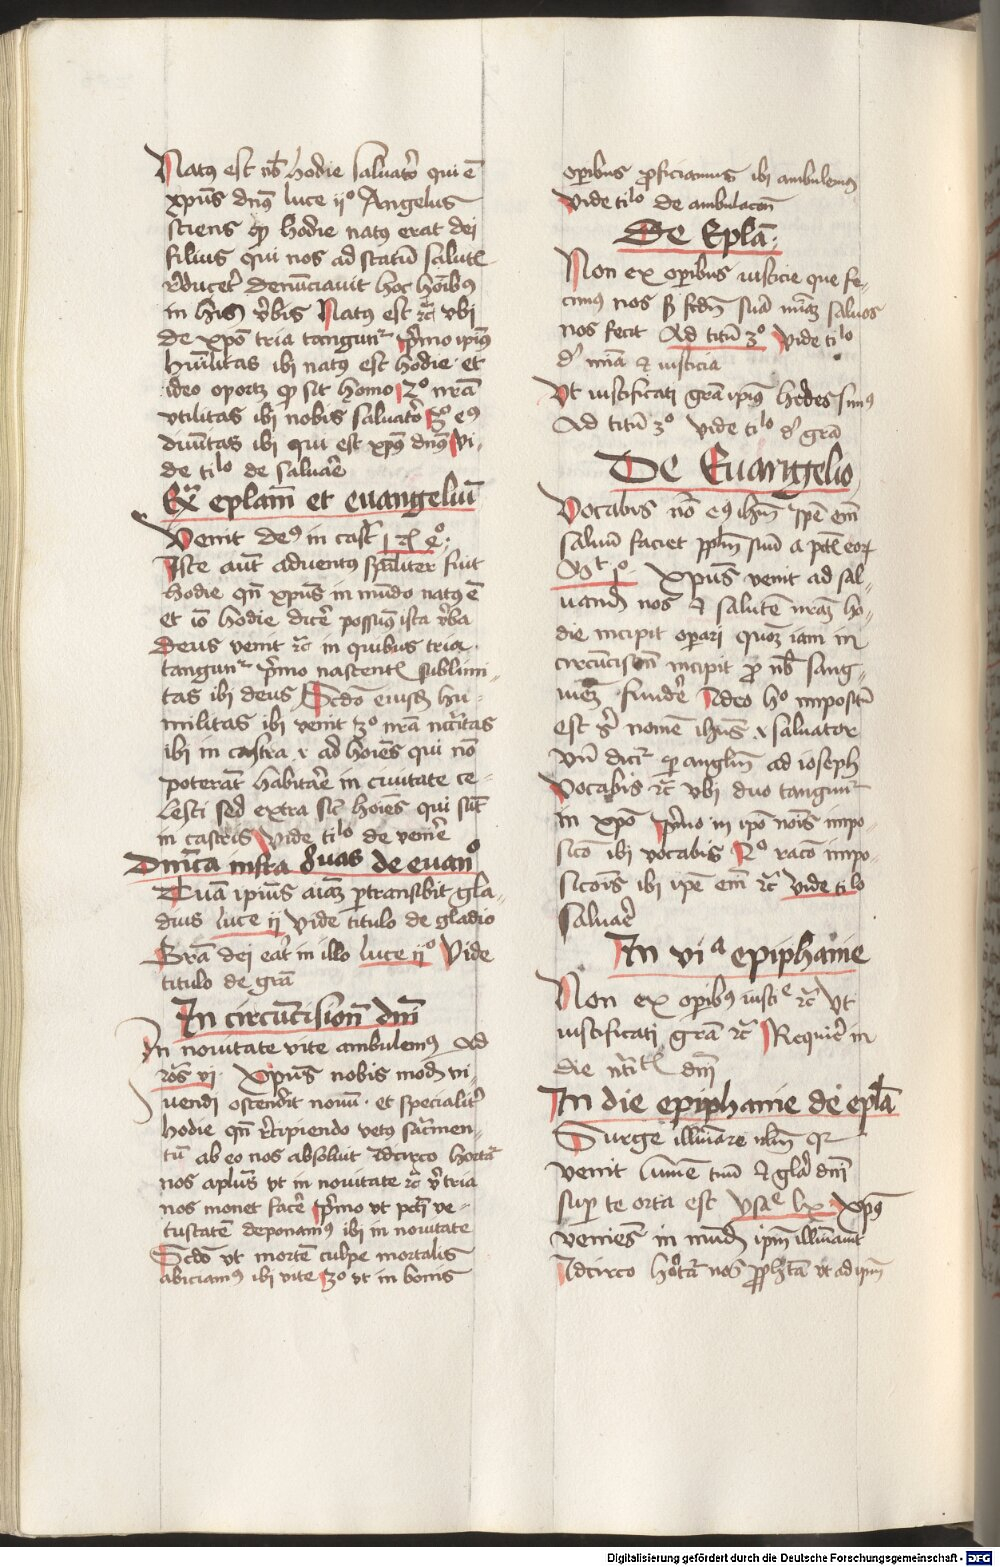 Natus est nob hodie saluator qui e
xpus dns luce ii° Angelus
sciens q hodie natus erat dei
filius qui nos ad statu salut
reducer denunciauit hoc hoibus
in his verbis Natus est rc vbi
de xpo tria tangunr primo ipius
huilitas ibi natus est hodie et
ideo oportz q sit homo 2° nram
vtilitas ibi nobis saluator 3° eus
diuitas ibi qui est xpus dns vi-
de tilo de saluare
Ex eplam et euangeliu
Venit deus in cast
Iste aut aduentus spaliter fuit
hodie qn xpus in mundo natus e
et io hodie dicere possumus ista verba
deus venit rc in quibus tria
tangunr primo nascent sublimi-
tas ibi deus Scdo eiusd hu-
militas ibi venit 3° nra
ibi in castra ad hoies qui no
poterat habitare in ciuitate ce-
lesti sed extra sic hoies qui sut
in castris Vide tilo de venire
Dnica infra 8uas de euano
Tuam ipius aiam ptransibit gla-
dius luce ii vide titulo de gladio
Gra dei erat in illo luce ii° Vide
titulo de gra
In circucision dni
In nouitate vite ambulemus Ad
ros vi Xpus nobis mod vi-
uendi ostendit nouu et specialit
hodie qn recipiendo vetus sacramen-
tu ab eo nos absoluit Idcirco hortar
nos aplus vt in nouitate rc vbi tria
nos monet facere primo vt pcti ve-
tustate deponamus ibi in nouitate
Scdo vt morte culpe mortalis
abiciamus ibi vite 3° vt in bonis
operibus proficiamus ibi ambulemus
Vide tilo de ambulacon
De Epla
Non ex operibus iusticie que fe-
cimus nos s scdm sua miam saluos
nos fecit Ad titu 3° Vide tilo
d mia et iusticia
Vt iustificati gra ipius hedes simus
Ad titu 3° vide tilo d gra
De Euangelio
Vocabis nom eius ihm ipe em
saluu faciet pplm suu a pctis eor
Mt 1° Xpus venit ad sal-
uand nos et salute nram ho-
die incipit operari quoz iam in
circucision incipit pro nob sang-
uiez fundere Ideo ho impositu
est nome ihus saluator
Vn dicir per anglm ad ioseph
Vocabis rc vbi duo tangunr
in xpo primo in ipo nois impo-
sico ibi vocabis 2° raco impo-
sicois ibi ipe em rc vide tilo
saluare
In via epiphanie
Non ex operibus iustie rc Vt
iustificati gra rc Require in
die dni
In die epiphanie de epla
Surge illuiare irlm qr
venit lume tuu et gla dni
super te orta est ysae lx Xpus
venies in mud ipm illuiauit
Idcirco hortar nos ppheta vt ad ipm
Digitalisierung gefördert durch die Deutsche Forschungsgemeinschaft - DFG